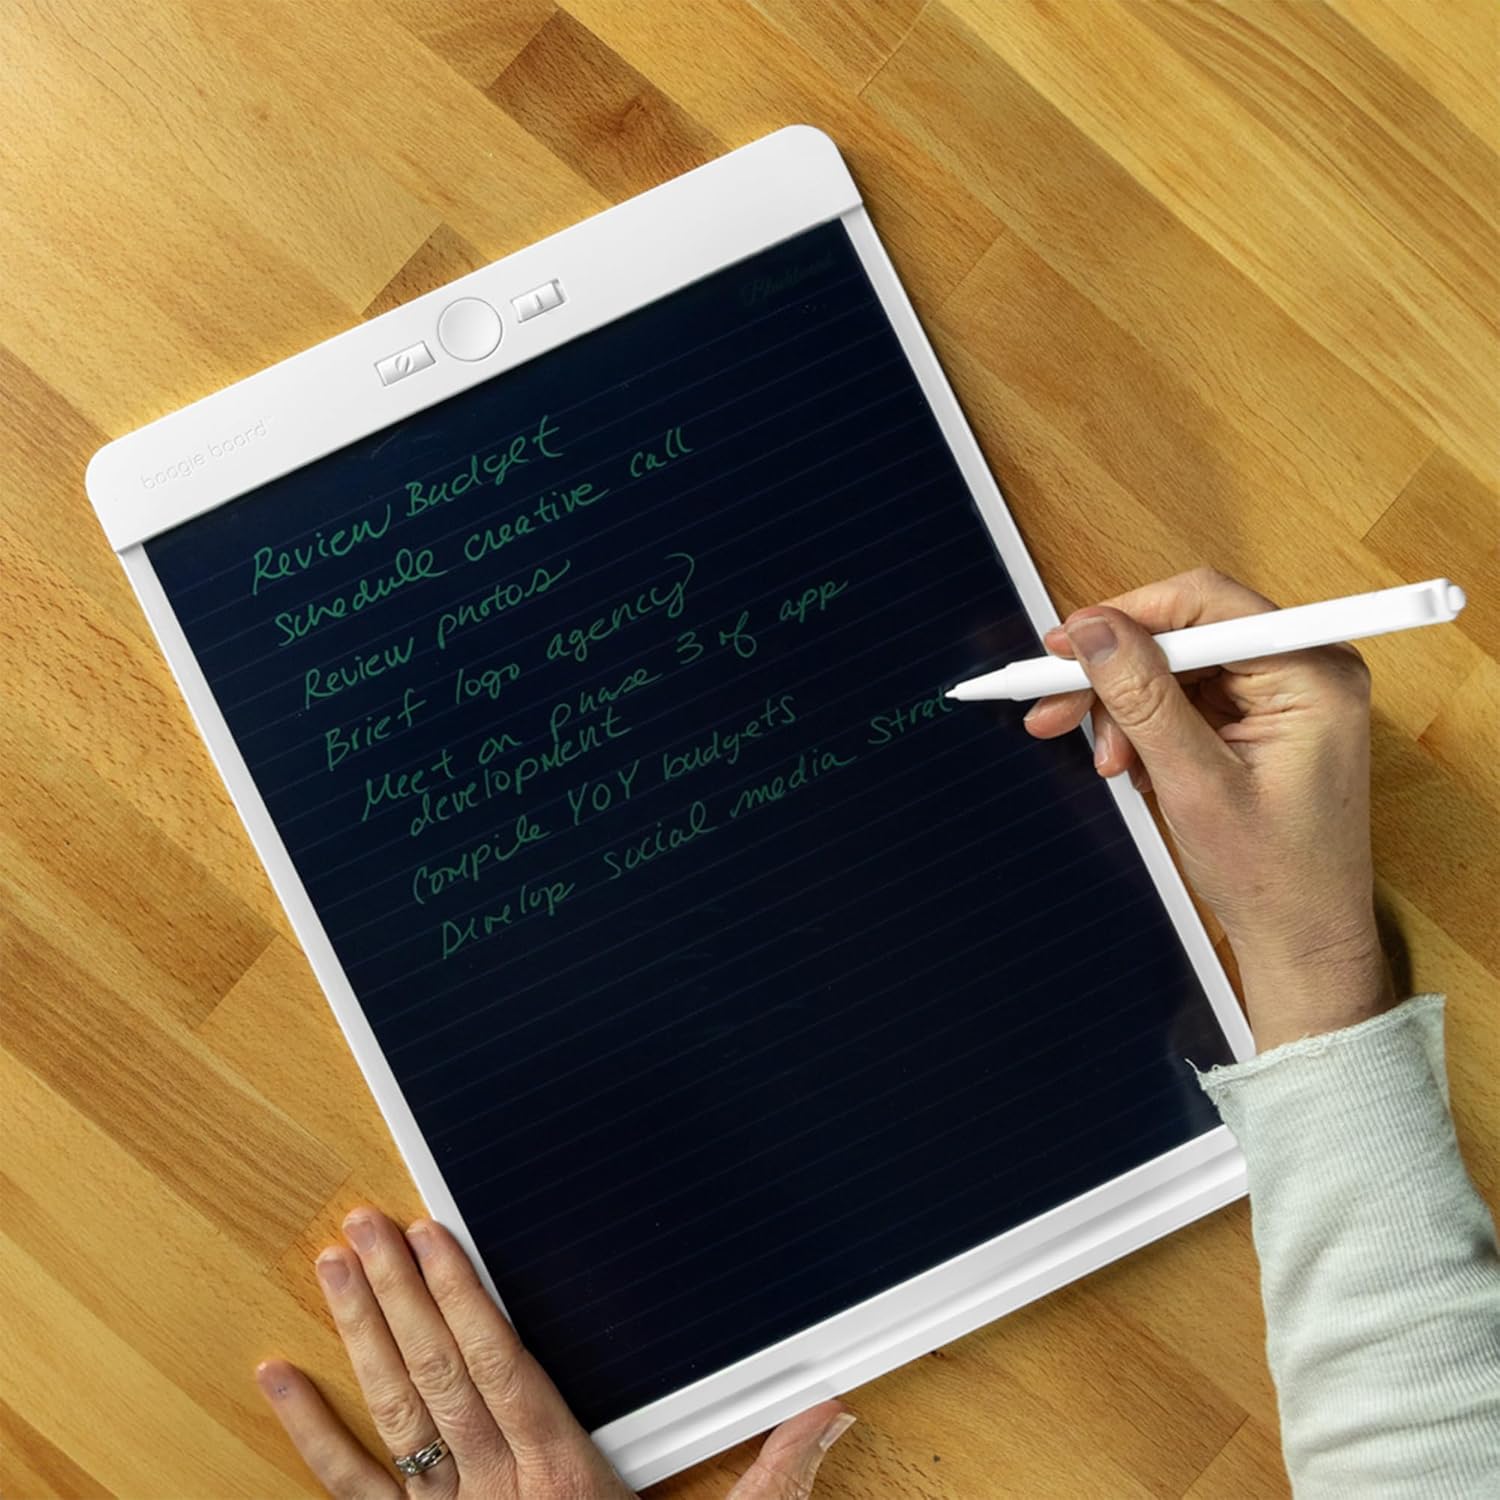 boogie board
Blackboard
Review Budget
schedule creative call
Review photos
Brief logo agency
Meet on phase 3 of app
development
Compile YOY budgets
Develop social media strat